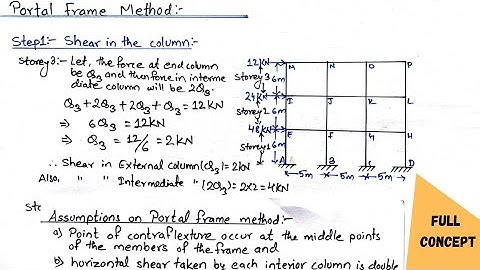 Portal Frame Method:-
Step1:- Shear in the column:-
Storey3:- Let, the force at end column
be Q3 and therefore in interme
diate column will be 2Q3.
Q3 + 2Q3 + 2Q3 + Q3 = 12KN
⇒ 6Q3 = 12KN
⇒ Q3 = 12/6 = 2KN
∴ Shear in External column(Q3) = 2KN
Also, " " Intermediate " (2Q3) = 2x2 = 4KN
12KN M N O P
Storey 3 6m
24KN I J K L
Storey 2 6m
48KN E F G H
Storey 1 6m
A B C D
5m 5m 5m
Assumptions on Portal frame method:-
a) Point of contraflexture occur at the middle points
of the members of the frame and
b) horizontal shear taken by each interior column is double
FULL
CONCEPT